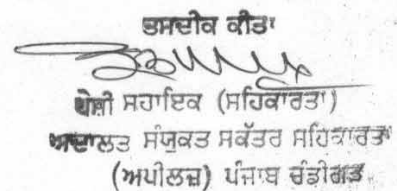 ਤਸਦੀਕ ਕੀਤਾ
ਪੇਸ਼ੀ ਸਹਾਇਕ (ਸਹਿਕਾਰਤਾ)
ਅਦਾਲਤ ਸੰਯੁਕਤ ਸਕੱਤਰ ਸਹਿਕਾਰਤਾ
(ਅਪੀਲਜ਼) ਪੰਜਾਬ ਚੰਡੀਗੜ